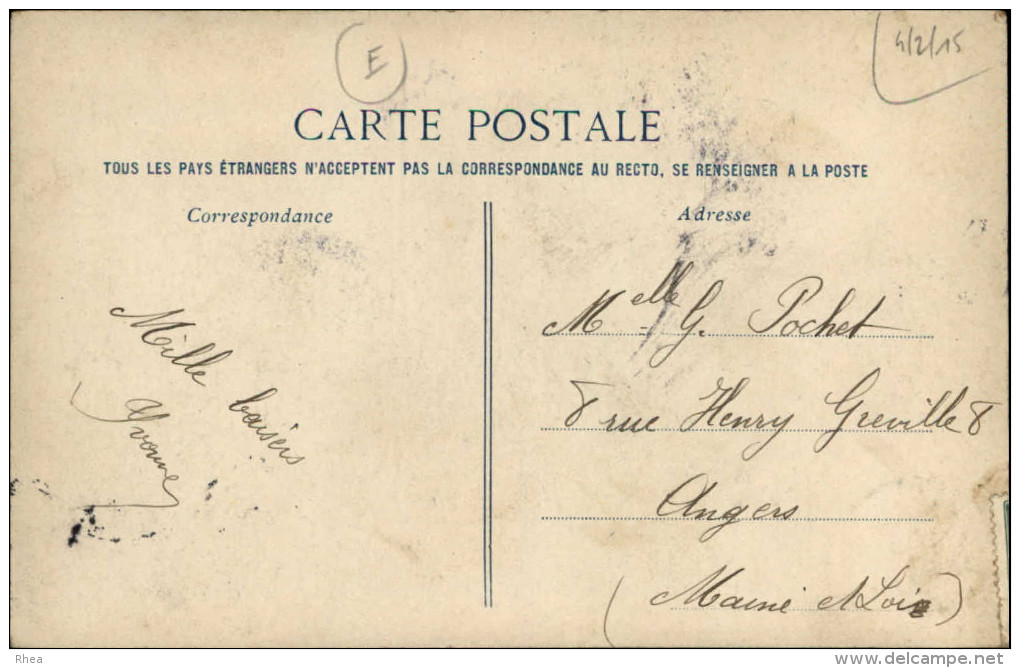 E
4/2/15
CARTE POSTALE
TOUS LES PAYS ÉTRANGERS N'ACCEPTENT PAS LA CORRESPONDANCE AU RECTO, SE RENSEIGNER A LA POSTE
Correspondance
Mille baisers
Yvonne
Adresse
Melle G. Pochet
8 rue Henry Greville 8
Angers
(Maine et Loire)
Rhea
delcampe.net